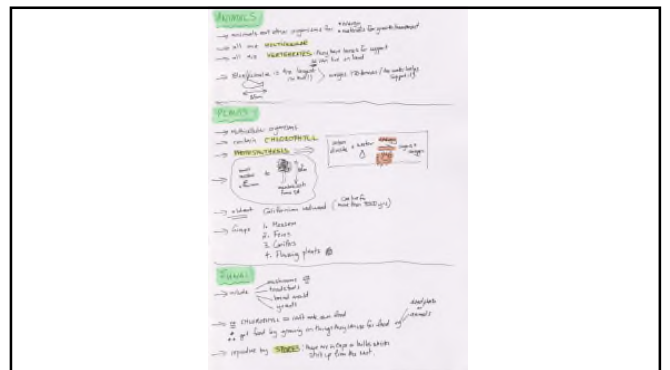 ANIMALS
→ animals eat other organisms for • energy
• materials for growth + movement
→ all are MULTICELLULAR
→ all are VERTEBRATES: they have bones for support
can live on land
→ Blue whale is the largest
weighs 150 tonnes (the water helps support it)
PLANTS
→ Multicellular organisms
→ contain CHLOROPHYLL
→ PHOTOSYNTHESIS
carbon dioxide + water
sugar + oxygen
small
to
→ oldest Californian redwood (can live for more than 3000 yrs)
→ Groups 1. Mosses
2. Ferns
3. Conifers
4. Flowering plants
FUNGI
→ include
mushrooms
toadstools
bread mould
yeasts
→ CHLOROPHYLL so can't make own food
∴ get food by growing on things they use for food
dead plants
animals
→ reproduce by SPORES: these are in caps or bulbs which stick up from the rest.